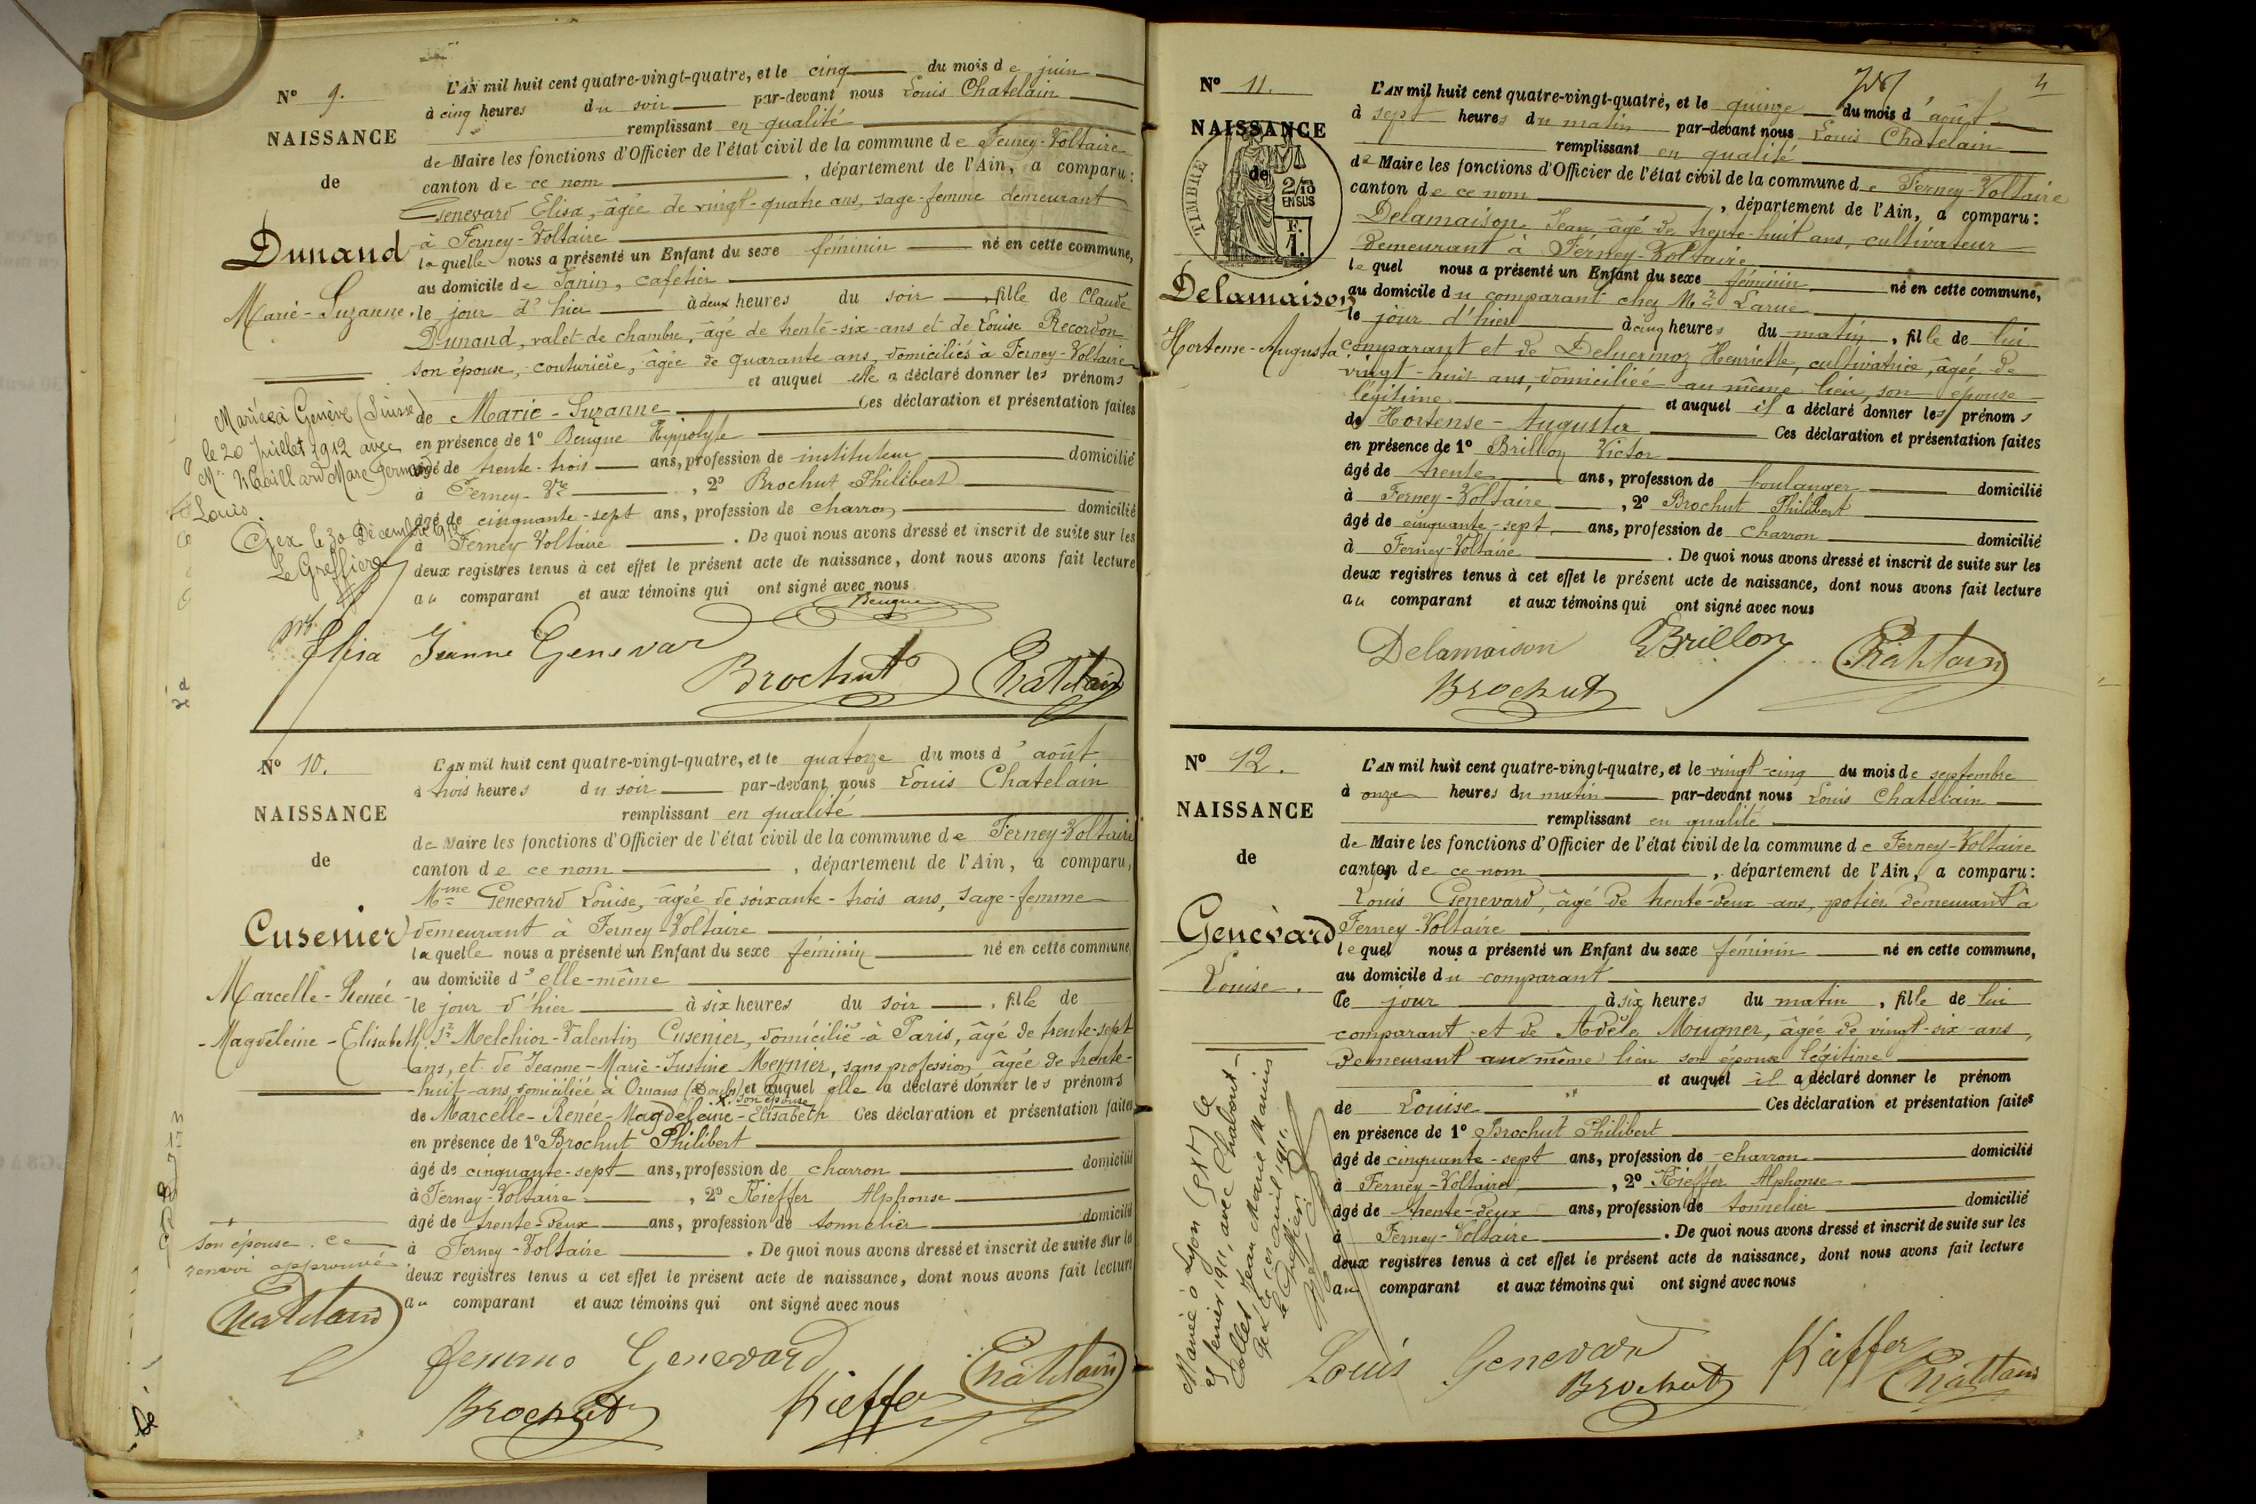 N° 9.
NAISSANCE
de
Dunand
Marie-Suzanne.
L'AN mil huit cent quatre-vingt-quatre, et le cinq du mois de juin
à cinq heures du soir par-devant nous Louis Chatelain
remplissant en qualité
de Maire les fonctions d'Officier de l'état civil de la commune de Ferney-Voltaire
canton de ce nom, département de l'Ain, a comparu:
Genevard Elisa, âgée de vingt-quatre ans, sage-femme demeurant
à Ferney-Voltaire
laquelle nous a présenté un Enfant du sexe féminin né en cette commune,
au domicile de Janin, cafetier
le jour d'hier à deux heures du soir, fille de Claude
Dunand, valet-de chambre, âgé de trente-six-ans et de Louise Recordon
son épouse, couturière, âgée de quarante-ans, domiciliés à Ferney-Voltaire
et auquel elle a déclaré donner les prénoms
de Marie-Suzanne Ces déclaration et présentation faites
en présence de 1° Beugue Hippolyte
âgé de trente-trois ans, profession de instituteur domicilié
à Ferney-Vre, 2° Brochut Philibert
âgé de cinquante-sept ans, profession de charron domicilié
à Ferney Voltaire. De quoi nous avons dressé et inscrit de suite sur les
deux registres tenus à cet effet le présent acte de naissance, dont nous avons fait lecture
au comparant et aux témoins qui ont signé avec nous
Mariée à Genève (Suisse)
le 20 Juillet 1912 avec
Marc Germain
Louis.
Gex le 30 Décembre 1912
Le Greffier
Beugue
Elisa Jeanne Genevar
Brochut Chatelain
N° 10.
NAISSANCE
de
Cusenier
Marcelle-Renée
-Magdeleine-Elisabeth
L'AN mil huit cent quatre-vingt-quatre, et le quatorze du mois d'août
à trois heures du soir par-devant nous Louis Chatelain
remplissant en qualité
de Maire les fonctions d'Officier de l'état civil de la commune de Ferney-Voltaire
canton de ce nom, département de l'Ain, a comparu,
Mme Genevard Louise, âgée de soixante-trois ans, sage-femme
demeurant à Ferney Voltaire
laquelle nous a présenté un Enfant du sexe féminin né en cette commune,
au domicile d'elle-même
le jour d'hier à six heures du soir, fille de
Sr Melchior-Valentin Cusenier, domicilié à Paris, âgé de trente-sept
ans, et de Jeanne-Marie-Justine Meynier, sans profession âgée de trente-
huit-ans domiciliée à Ornans (Doubs) et auquel elle a déclaré donner les prénoms
x son épouse
de Marcelle-Renée-Magdeleine-Elisabeth Ces déclaration et présentation faites
en présence de 1° Brochut Philibert
âgé de cinquante-sept ans, profession de charron domicilié
à Ferney-Voltaire, 2° Kieffer Alphonse
âgé de trente-deux ans, profession de tonnelier domicilié
à Ferney-Voltaire. De quoi nous avons dressé et inscrit de suite sur les
deux registres tenus à cet effet le présent acte de naissance, dont nous avons fait lecture
au comparant et aux témoins qui ont signé avec nous
son épouse. ce
renvoi approuvé
Chatelain
Genevard Chatelain
Brochut Kieffer
4
N° 11.
NAISSANCE
de
TIMBRE
2/10
EN SUS
F.
1.
Delamaison
Hortense-Augusta
L'AN mil huit cent quatre-vingt-quatre, et le quinze du mois d'août
à sept heures du matin par-devant nous Louis Chatelain
remplissant en qualité
de Maire les fonctions d'Officier de l'état civil de la commune de Ferney-Voltaire
canton de ce nom, département de l'Ain, a comparu:
Delamaison Jean, âgé de trente-huit ans, cultivateur
demeurant à Ferney-Voltaire
lequel nous a présenté un Enfant du sexe féminin né en cette commune,
au domicile du comparant chez Mr Larue
le jour d'hier à cinq heures du matin, fille de lui
comparant et de Deluermoz Henriette, cultivatrice, âgée de
vingt-huit ans, domiciliée au même lieu, son épouse
légitime et auquel il a déclaré donner les prénoms
de Hortense-Augusta Ces déclaration et présentation faites
en présence de 1° Brillon Victor
âgé de trente ans, profession de boulanger domicilié
à Ferney-Voltaire, 2° Brochut Philibert
âgé de cinquante-sept ans, profession de charron domicilié
à Ferney-Voltaire. De quoi nous avons dressé et inscrit de suite sur les
deux registres tenus à cet effet le présent acte de naissance, dont nous avons fait lecture
au comparant et aux témoins qui ont signé avec nous
Delamaison Brillon Chatelain
Brochut
N° 12.
NAISSANCE
de
Genévard
Louise.
L'AN mil huit cent quatre-vingt-quatre, et le vingt-cinq du mois de septembre
à onze heures du matin par-devant nous Louis Chatelain
remplissant en qualité
de Maire les fonctions d'Officier de l'état civil de la commune de Ferney-Voltaire
canton de ce nom, département de l'Ain, a comparu:
Louis Genevard, âgé de trente-deux ans, potier demeurant à
Ferney-Voltaire
lequel nous a présenté un Enfant du sexe féminin né en cette commune,
au domicile du comparant
Ce jour à six heures du matin, fille de lui
comparant et de Adèle Mougner, âgée de vingt-six-ans,
demeurant au même lieu son épouse légitime
et auquel il a déclaré donner le prénom
de Louise Ces déclaration et présentation faites
en présence de 1° Brochut Philibert
âgé de cinquante-sept ans, profession de charron domicilié
à Ferney-Voltaire, 2° Kieffer Alphonse
âgé de trente-deux ans, profession de tonnelier domicilié
à Ferney-Voltaire. De quoi nous avons dressé et inscrit de suite sur les
deux registres tenus à cet effet le présent acte de naissance, dont nous avons fait lecture
au comparant et aux témoins qui ont signé avec nous
Mariée à Lyon
1911, avec
Jean Marie Marius
Gex le avril 1911.
le Greffier
Louis Genevard Kieffer
Brochut Chatelain